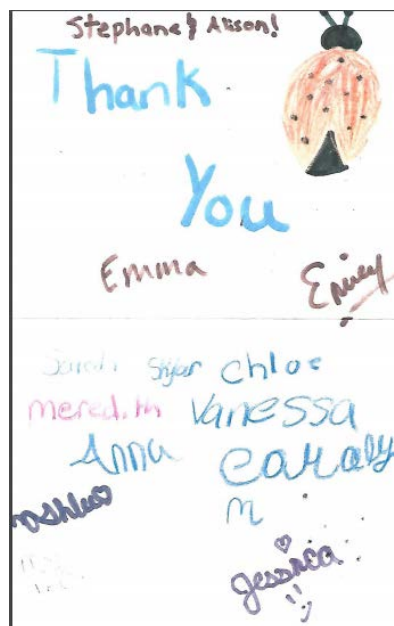 Stephane & Alison!
Thank
You
Emma Emily
Sarah Skylar Chloe
meredith Vanessa
Anna Caraly
n
Jessica